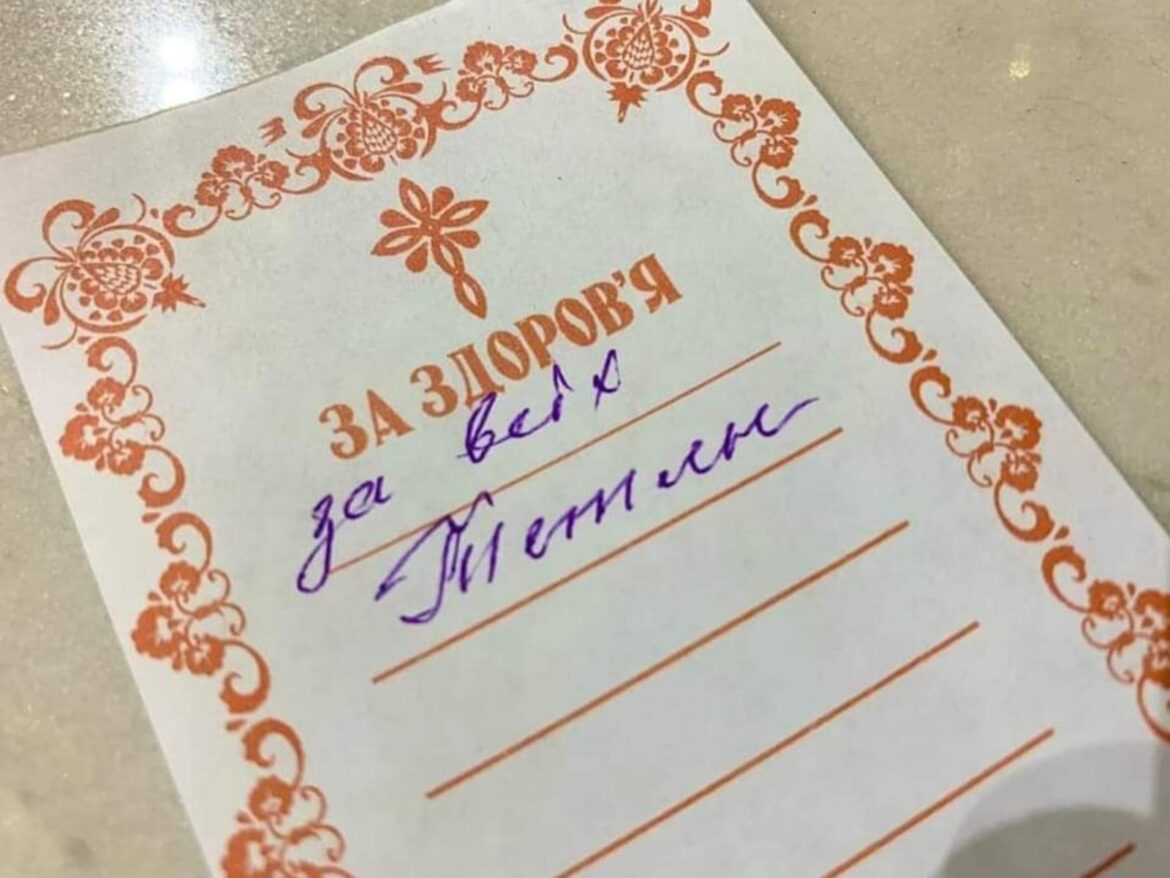 ЗА ЗДОРОВ'Я
за всіх